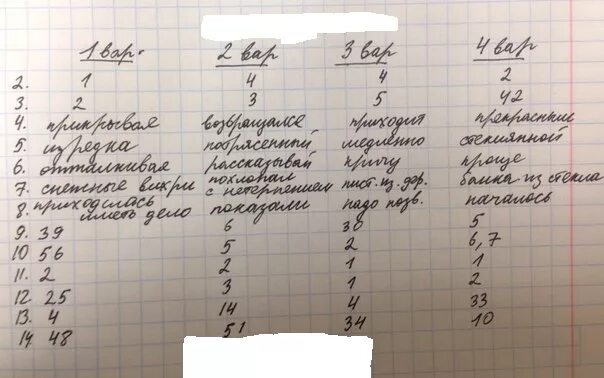 1 вар. 2 вар 3 вар 4 вар
2. 1 4 4 2
3. 2 3 5 42
4. прикрывая возвращался приходит прекрасный
5. изредка потрясенный медленно стеклянной
6. отталкивая рассказывай кричу проще
7. снежные вихри похлопал с нетерпением лист. из дер. банка из стекла
8. приходилась иметь дело показали надо позв. началось
9. 39 6 30 5
10 56 5 2 6,7
11. 2 2 1 1
12 25 3 1 2
13. 4 14 4 33
14. 48 51 34 10